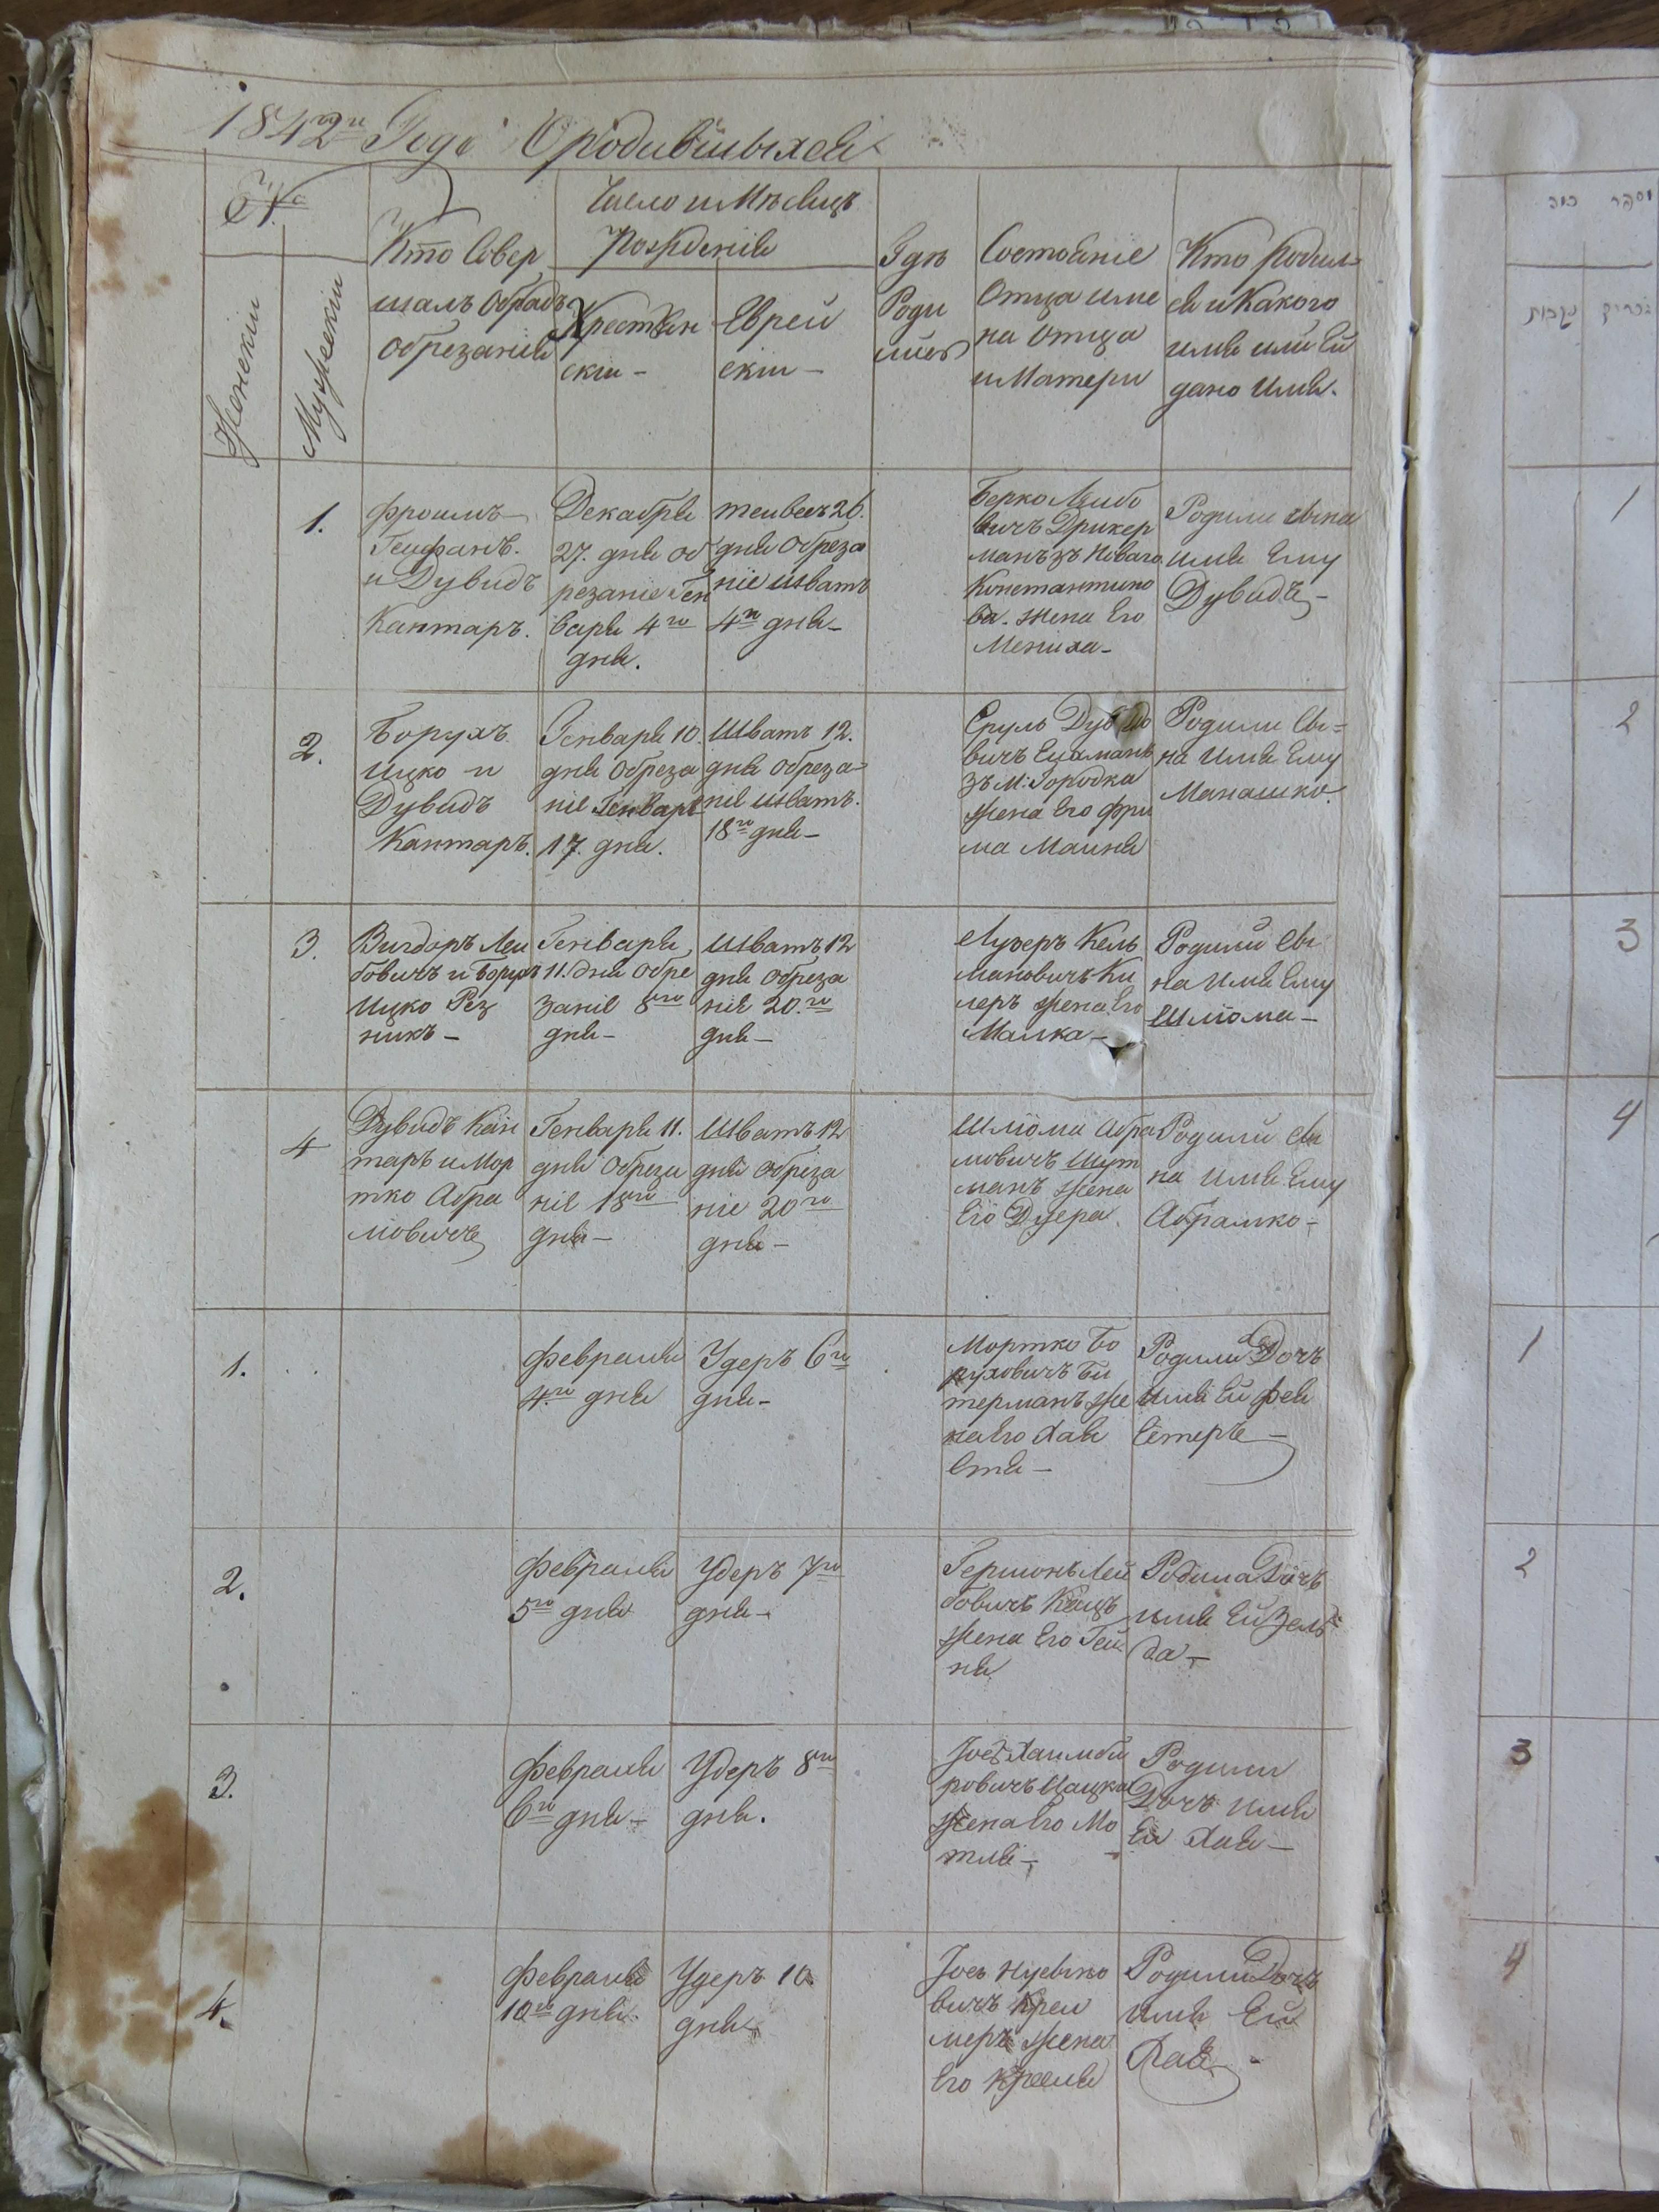 1842го Года О родившыхся
№
Женскии
Мужескии
Кто Совер
шалъ Обрядъ
Обрезания
Число и Мѣсяцъ
Рождения
Християн
скии -
Еврей
скии -
Гдѣ
Роди
лися
Состояніе
Отца име
на Отца
и Матери
Кто Родил-
ся и Какого
имя или Ей
дано Имя.
1.
Фроимъ
Гейфанъ.
и Дувидъ
Кантаръ.
Декабря
27. дня об
резаніе Ген
варя 4го
дня.
тейвес 26.
дня Обреза
ніе шватъ
4го дня -
Берко Лейбо
вичъ Дрикер
манъ зъ Новаго
Константино
ва. жена Его
Мениха -
Родили сына
имя Ему
Дувидъ -
2.
Борухъ
Ицко и
Дувидъ
Кантаръ.
Генваря 10.
дня Обреза
ніе Генваря
17. дня.
Шватъ 12.
дня обреза-
ніе шватъ.
18го дня -
Сруль Дувидо
вичъ
зъ М: Городка
жена Его Фри
ма Маиня
Родили Сы=
на Имя Ему
Манашко.
3.
Вигдоръ Леи
бовичъ и Борухъ
Ицко Рез
никъ -
Генваря
11. дня Обре
заніе 8го
дня -
Шватъ 12
дня Обреза
ніе 20.го
дня -
Лузеръ Кель
мановичъ Ки
леръ жена Его
Малка -
Родили Сы
на Имя Ему
Шлiома -
4
Дувидъ Кан
таръ и Мор
тко Абра
мовичъ
Генваря 11.
дня Обреза
ніе 18го
дня -
Шватъ 12
дня обреза
ніе 20го
дня -
Шлiома Абра
мовичъ Шут
манъ жена
Его
Родили Сы
на Имя Ему
Абрамко -
1.
Февраля
4.го дня
Удеръ 6го
дня -
Мортко Бо
руховичъ Би
терманъ же
на Его Хая
Етя -
Родили Дочъ
Имя Ей Фея
Естеръ -
2.
Февраля
5го дня
Удеръ 7го
дня -
Гершонъ Лей
бовичъ Кацъ
жена Его Гей
ня
Родила Дочъ
имя Ей Зель
да -
3.
Февраля
6го дня -
Удеръ 8го
дня.
жена Его Мо
тля -
Родили
Дочъ имя
Ей Хая -
4.
Февраля
10го дня
Удеръ 10.
дня
вичъ Креи
меръ жена
Его Крейня
Родили Дочъ
имя Ей
Хая -
1
2
3
4
1
2
3
4